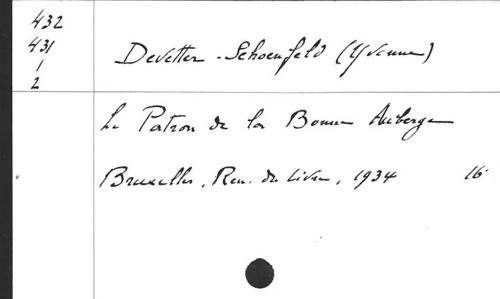 432
431
1
2
Devetter-Schoenfeld (Yvonne)
Le Patron de la Bonne Auberge
Bruxelles, Ren. du Livre, 1934 16